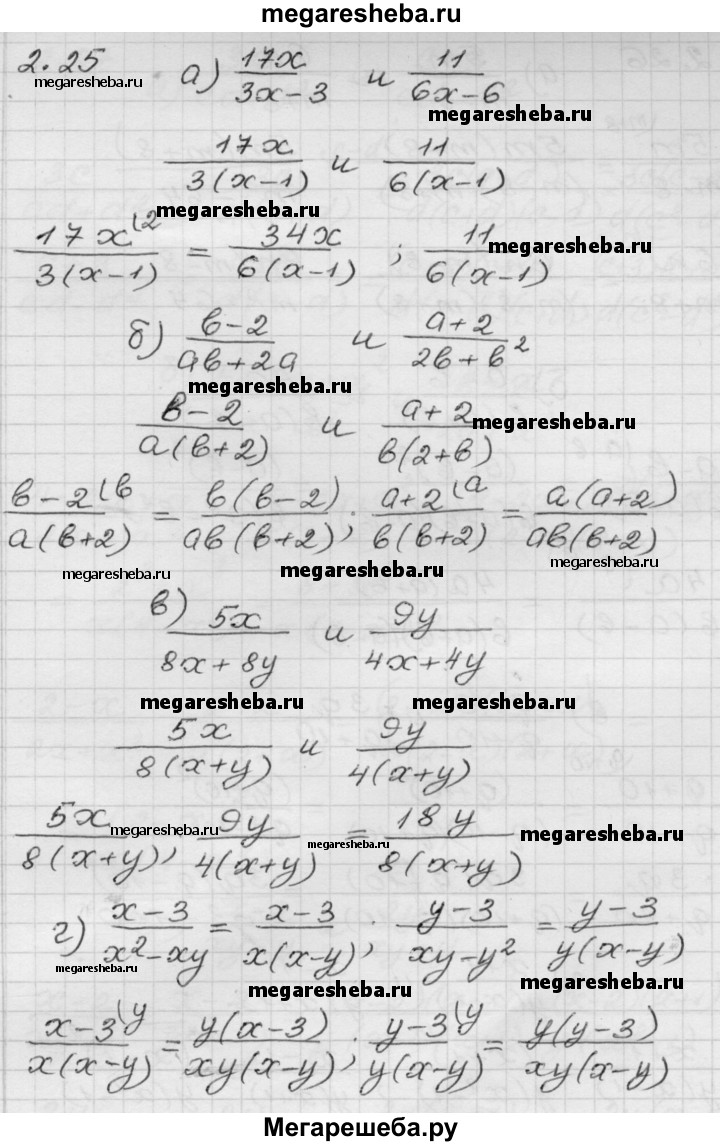 megaresheba.ru
2.25 а) 17x/(3x-3) и 11/(6x-6)
megaresheba.ru
megaresheba.ru
17x/(3(x-1)) и 11/(6(x-1))
megaresheba.ru
17x\2/(3(x-1)) = 34x/(6(x-1)) ; 11/(6(x-1))
megaresheba.ru
б) (в-2)/(aв+2a) и (a+2)/(2в+в²)
megaresheba.ru
(в-2)/(a(в+2)) и (a+2)/(в(2+в))
megaresheba.ru
(в-2\в)/(a(в+2)) = в(в-2)/(aв(в+2)) ; (a+2\a)/(в(в+2)) = a(a+2)/(aв(в+2))
megaresheba.ru megaresheba.ru megaresheba.ru
в) 5x/(8x+8y) и 9y/(4x+4y)
megaresheba.ru megaresheba.ru
5x/(8(x+y)) и 9y/(4(x+y))
5x/(8(x+y)) ; 9y/(4(x+y)) = 18y/(8(x+y))
megaresheba.ru megaresheba.ru megaresheba.ru
г) (x-3)/(x²-xy) = (x-3)/(x(x-y)) ; (y-3)/(xy-y²) = (y-3)/(y(x-y))
megaresheba.ru megaresheba.ru megaresheba.ru
(x-3\y)/(x(x-y)) = y(x-3)/(xy(x-y)) ; (y-3\y)/(y(x-y)) = y(y-3)/(xy(x-y))
Мегарешеба.ру